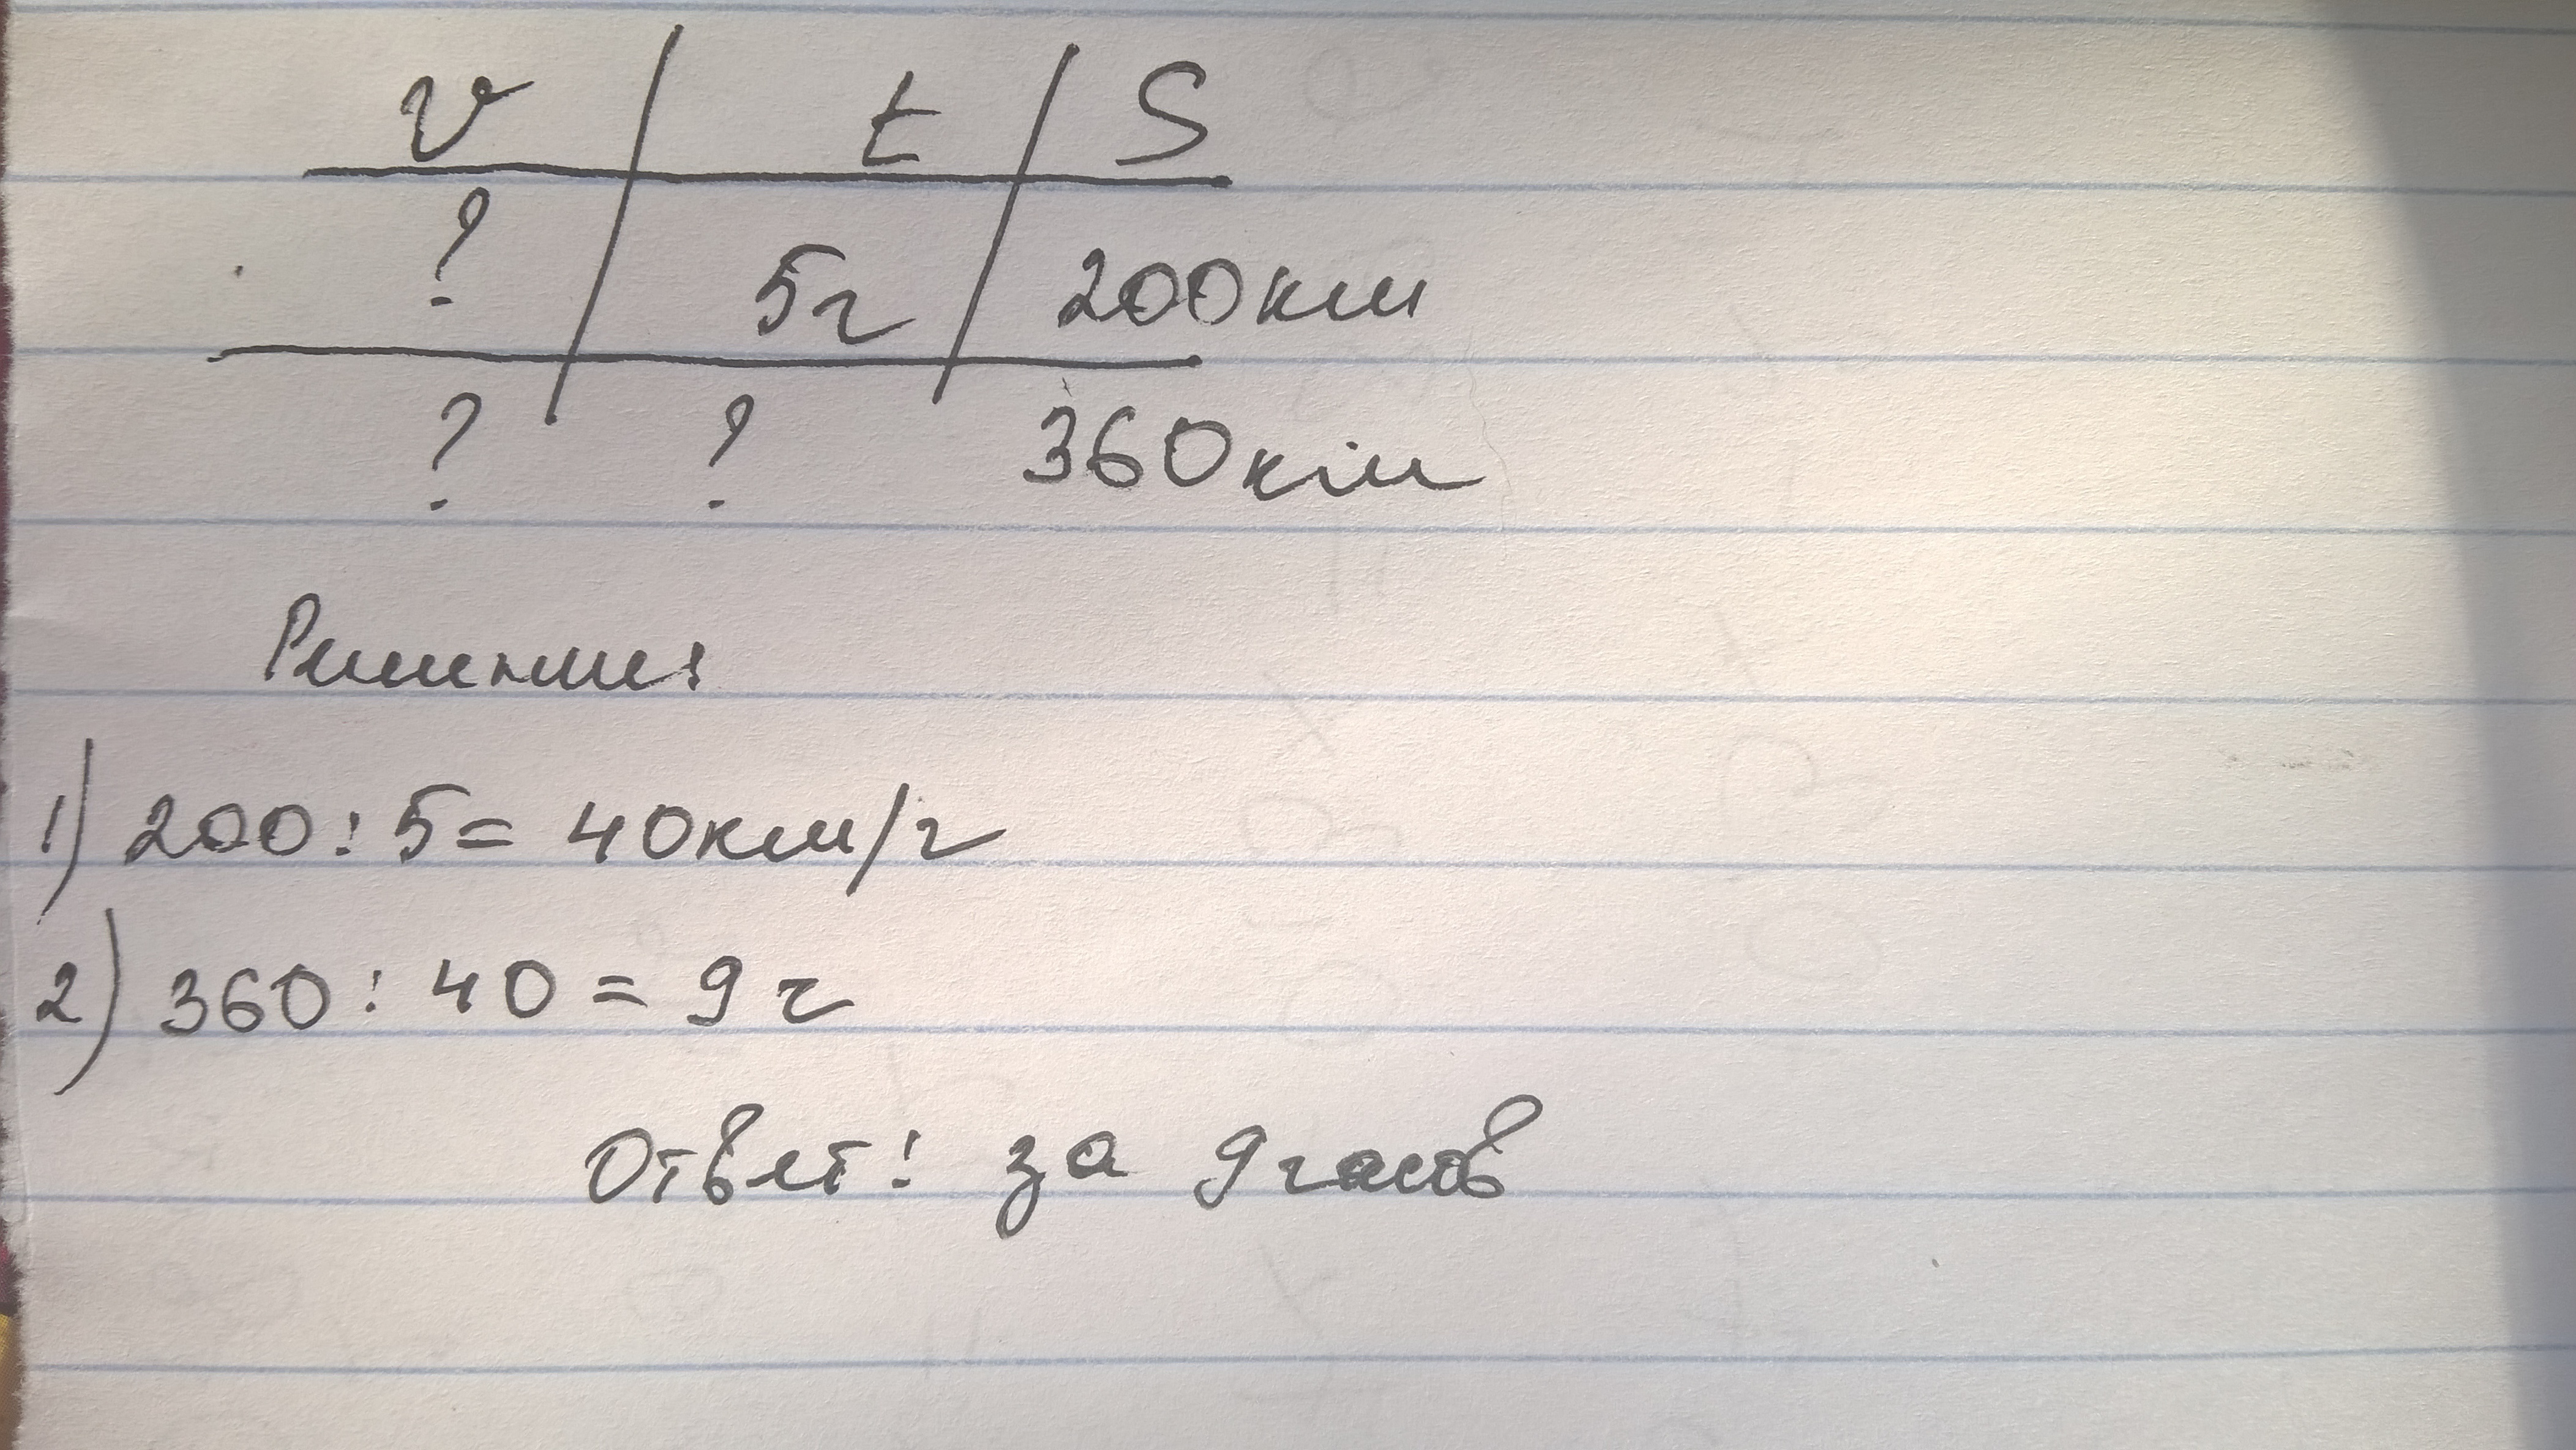 v t S
? 5ч 200км
? ? 360км
Решения
1) 200:5= 40км/ч
2) 360:40=9ч
Ответ: за 9 часов